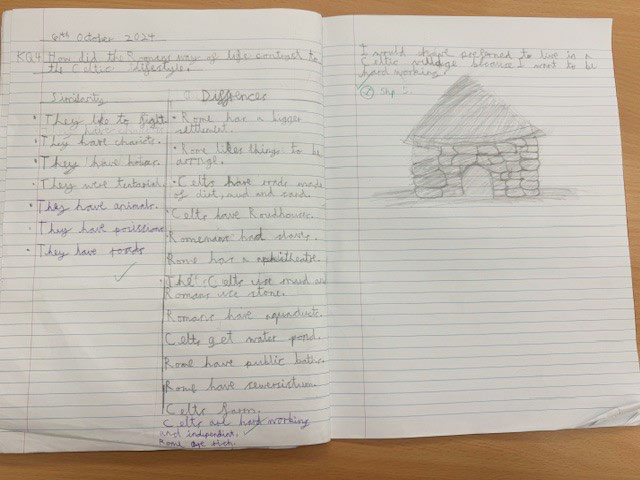 October 2024
KQ4 How did the Romans way of life contrast to
the Celtic lifestyle.
Similarity
• They like to fight
• They have chariots.
• They have houses.
• They were
• They have animals.
• They have
• They have roads
Diffrences
• Rome has a bigger
settlement.
• Rome likes things to be
• Celts have roads made
of dirt, mud and sand.
• Celts have Roudhouses.
had slaves.
Rome have a
The Celts use mud and
Romans use stone.
Romans have
Celts get water pond.
Rome have public baths.
Rome have
Celts farm.
Celts are hard working
and
Rome are rich.
I would prefened to live in a
Celtic village because I want to be
hard working.